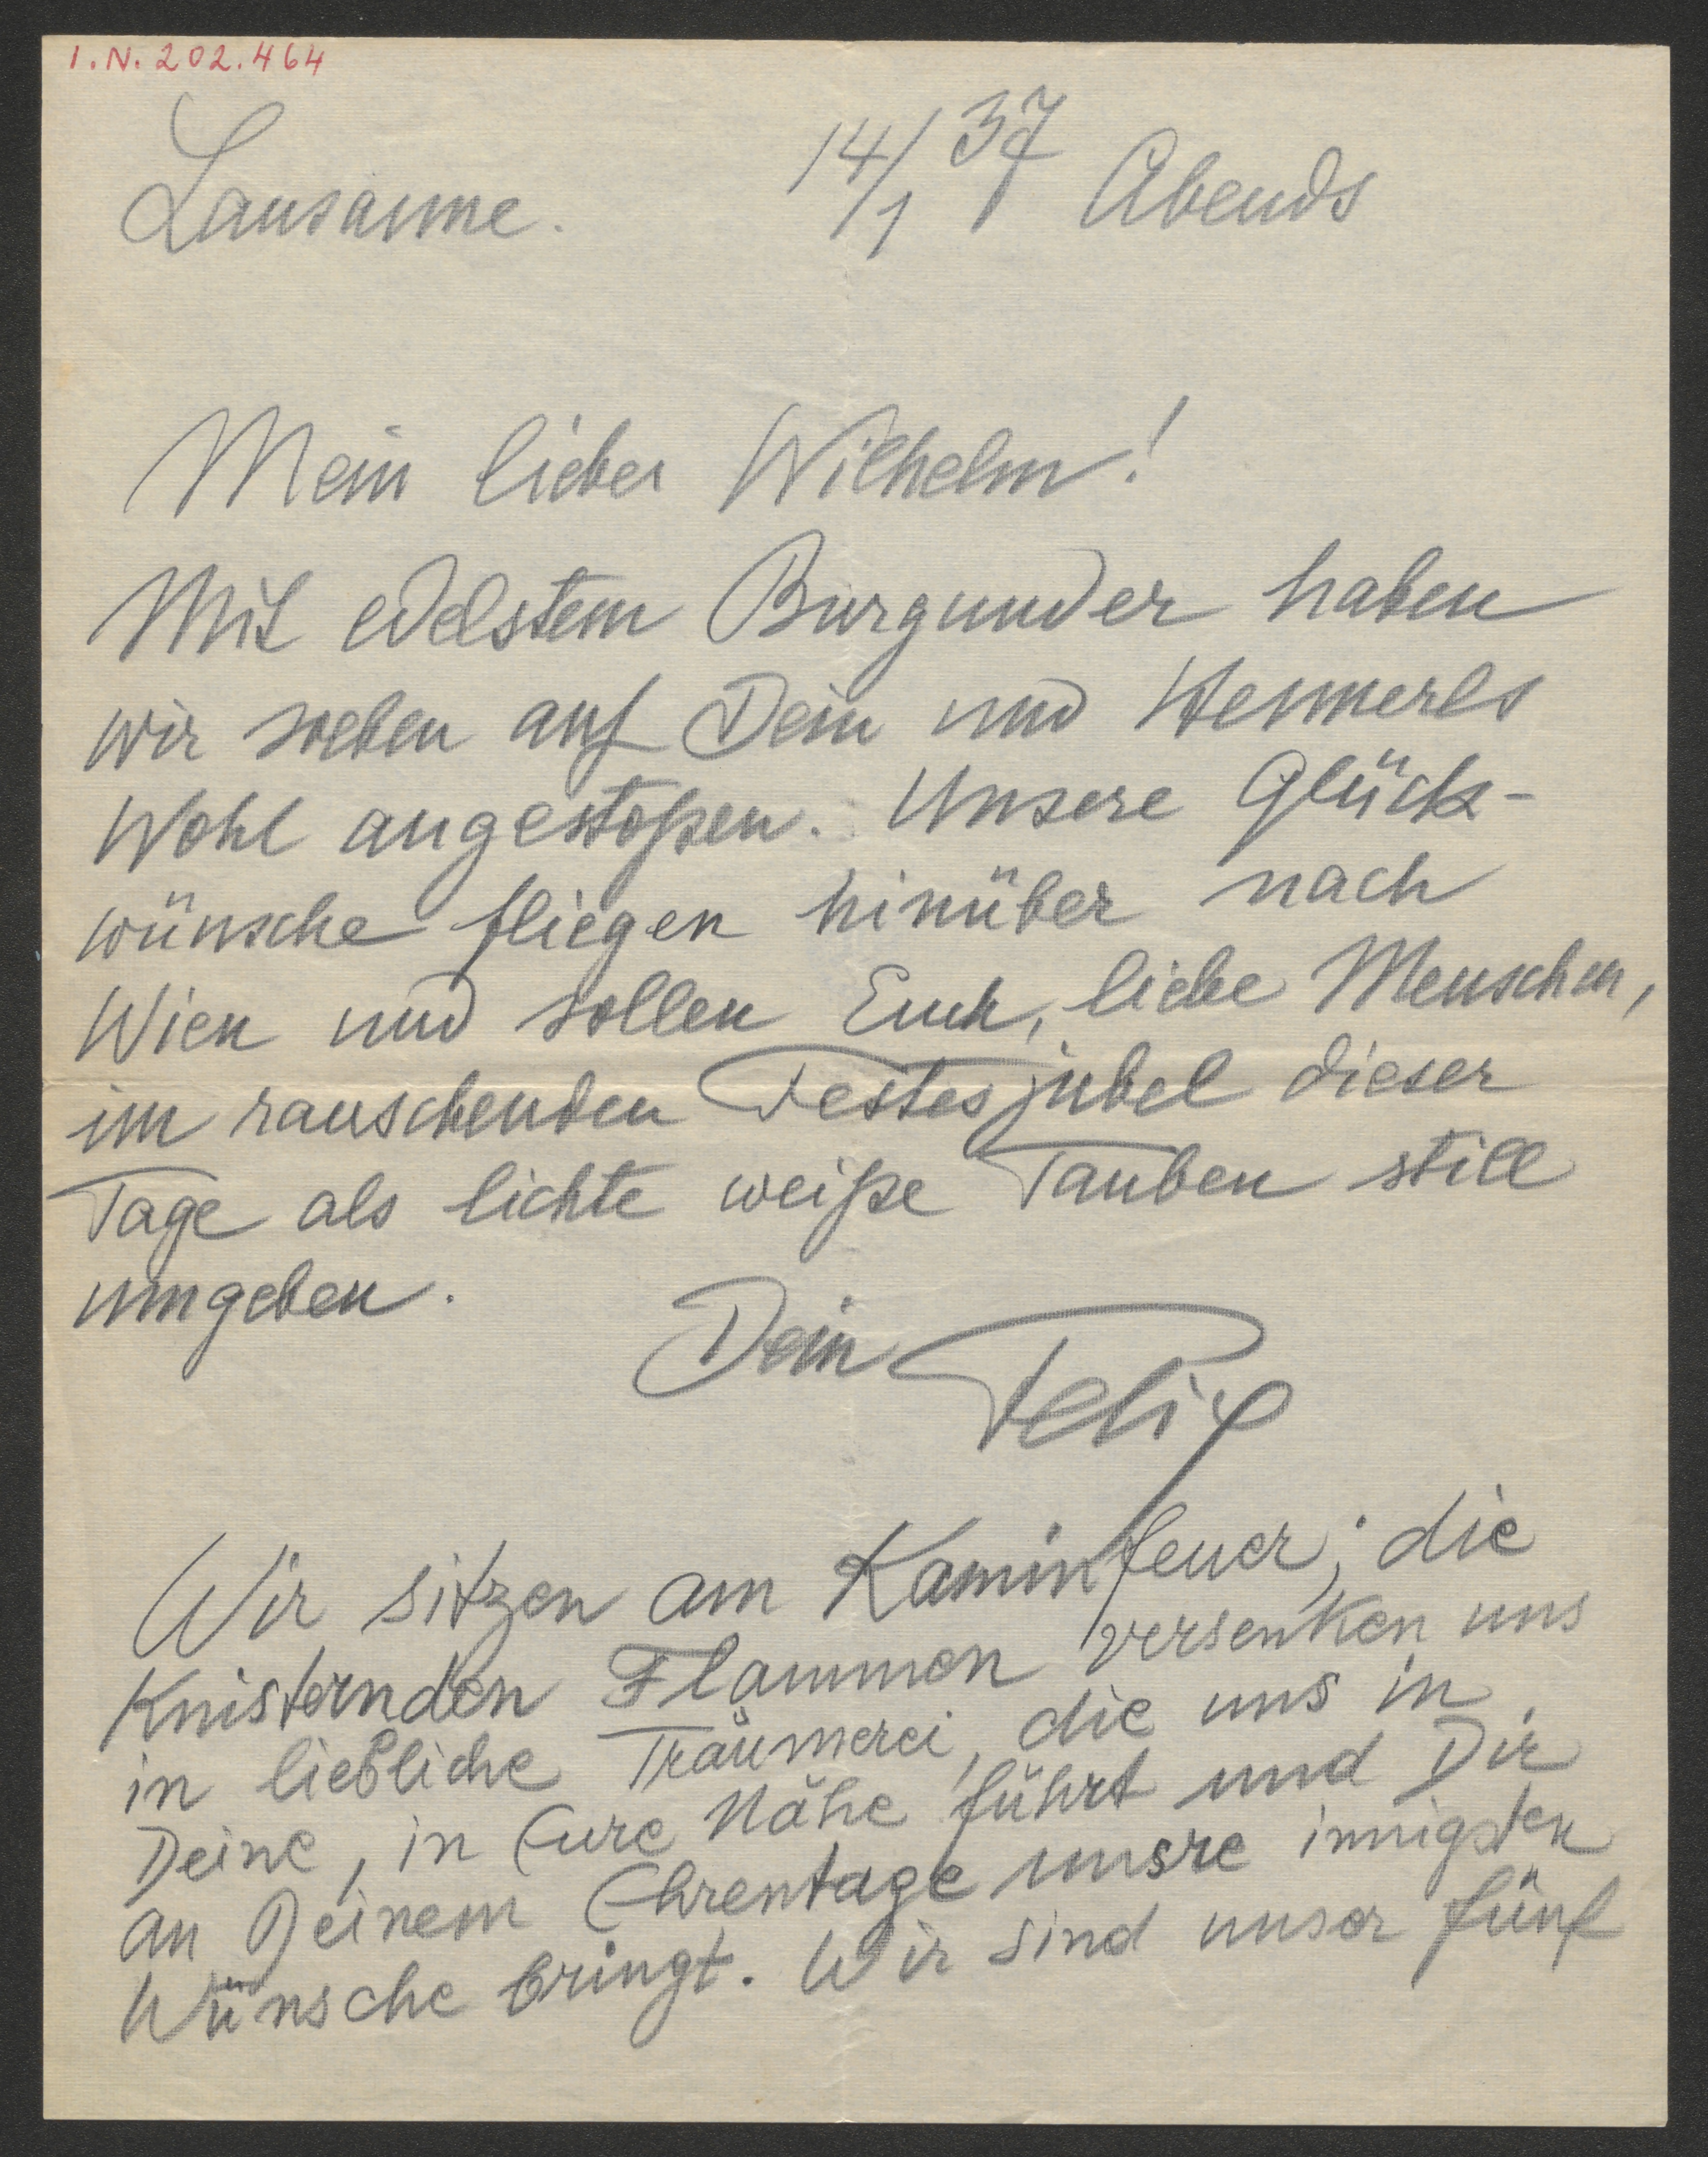 I.N. 202.464
Lausanne. 14/1 37 Abends
Mein lieber Wilhelm!
Mit edelstem Burgunder haben
wir soeben auf Dein und Hemmerls
Wohl angestoßen. Unsere Glück-
wünsche fliegen hinüber nach
Wien und sollen Euch, liebe Menschen,
im rauschenden Festesjubel dieser
Tage als lichte weiße Tauben still
umgeben.
Dein Felix
Wir sitzen am Kaminfeuer; die
Knisternden Flammen versenken uns
in liebliche Träumerei, die uns in
Deine, in Eure Nähe führt und Dir
an Deinem Ehrentage unsre innigsten
Wünsche bringt. Wir sind unser fünf